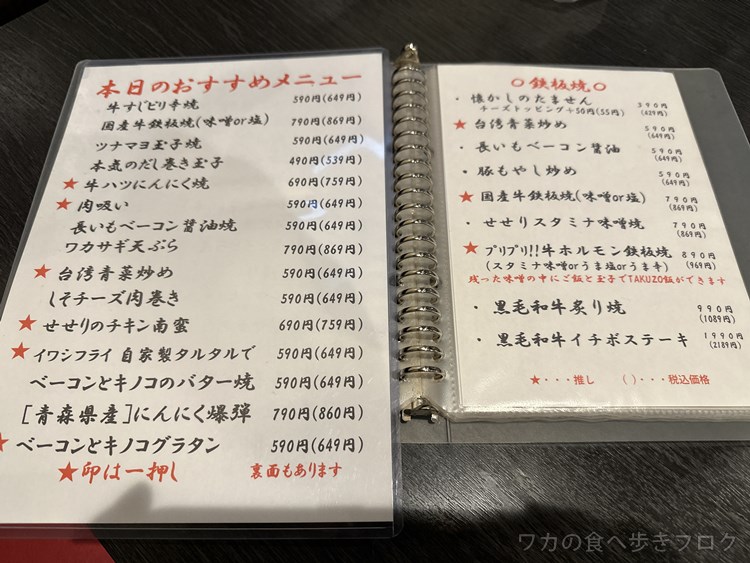 本日のおすすめメニュー
牛すじピリ辛焼 590円(649円)
国産牛鉄板焼(味噌or塩) 790円(869円)
ツナマヨ玉子焼 590円(649円)
本気のだし巻き玉子 490円(539円)
★牛ハツにんにく焼 690円(759円)
★肉吸い 590円(649円)
長いもベーコン醤油焼 590円(649円)
ワカサギ天ぷら 790円(869円)
★台湾青菜炒め 590円(649円)
しそチーズ肉巻き 590円(649円)
★せせりのチキン南蛮 690円(759円)
★イワシフライ 自家製タルタルで 590円(649円)
ベーコンとキノコのバター焼 590円(649円)
[青森県産]にんにく爆弾 790円(860円)
★ベーコンとキノコグラタン 590円(649円)
★印は一押し 裏面もあります
○鉄板焼○
・懐かしのたません 390円
チーズトッピング+50円(55円) (429円)
★台湾青菜炒め 590円
(649円)
・長いもベーコン醤油 590円
(649円)
・豚もやし炒め 590円
(649円)
★国産牛鉄板焼(味噌or塩) 790円
(869円)
・せせりスタミナ味噌焼 790円
(869円)
★プリプリ!!牛ホルモン鉄板焼 890円
(スタミナ味噌orうま塩orうま辛) (969円)
残った味噌の中にご飯と玉子でTAKUZO飯ができます
・黒毛和牛炙り焼 990円
(1089円)
・黒毛和牛イチボステーキ 1990円
(2189円)
★・・・推し ( )・・・税込価格
ワカの食べ歩きブログ